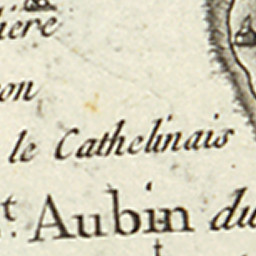 iere
on
le Cathelinais
t. Aubin du